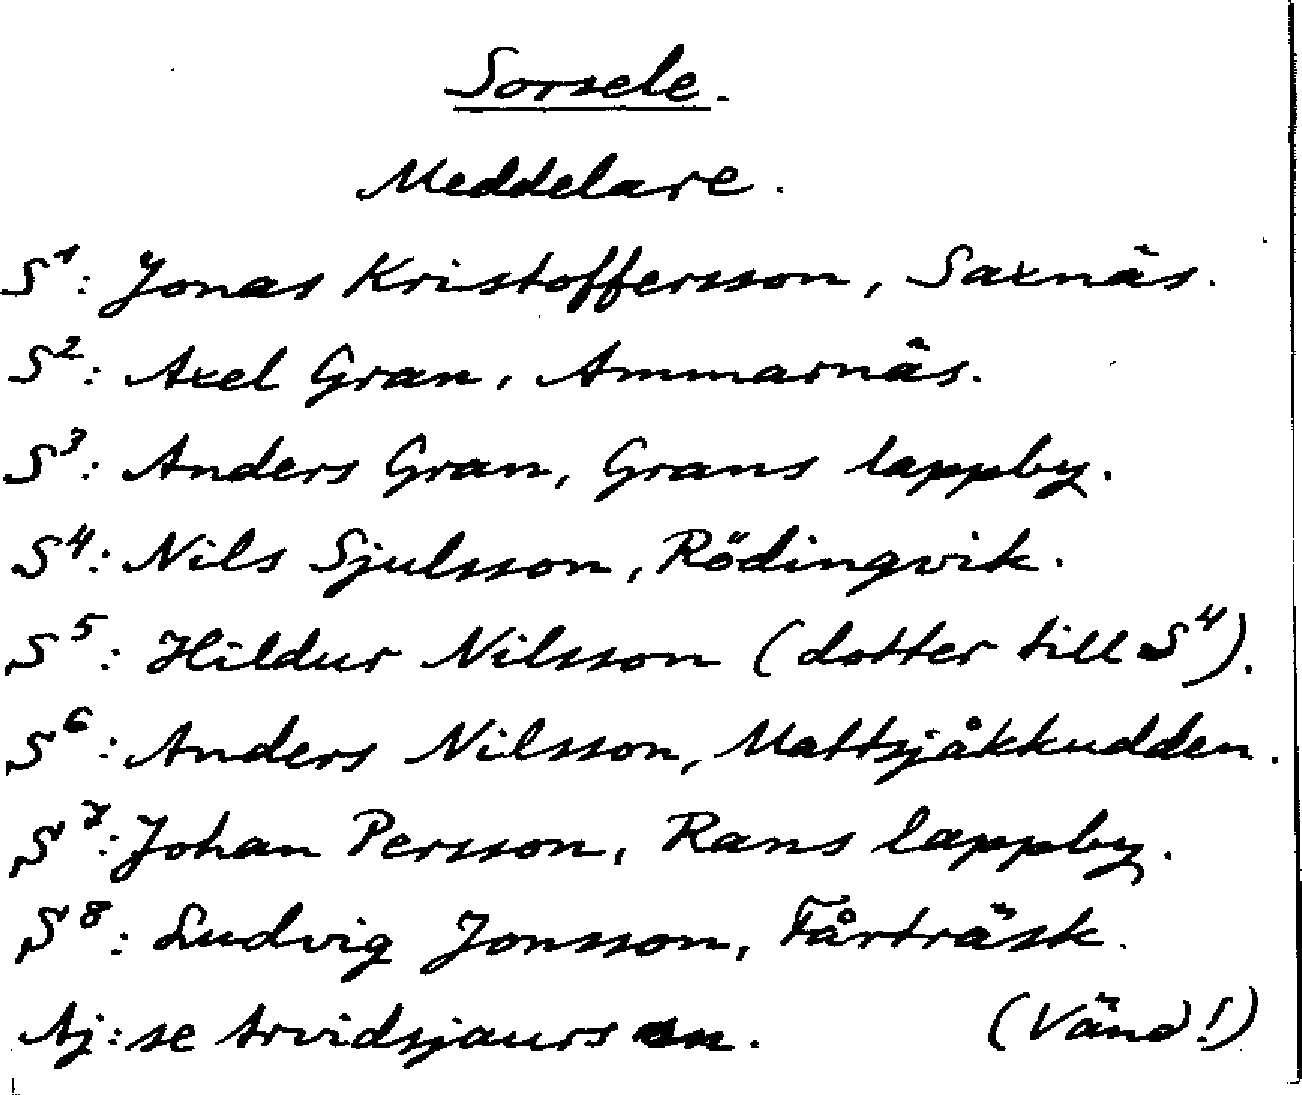 Sorsele.
Meddelare.
S¹: Jonas Kristoffersson, Saxnäs.
S²: Axel Gran, Ammarnäs.
S³: Anders Gran, Grans lappby.
S⁴: Nils Sjulsson, Rödingvik.
S⁵: Hildur Nilsson (dotter till S⁴).
S⁶: Anders Nilsson, Mattsjåkkudden.
S⁷: Johan Persson, Rans lappby.
S⁸: Ludvig Jonsson, Fårträsk.
Aj: se Arvidsjaurs sn. (Vänd!)